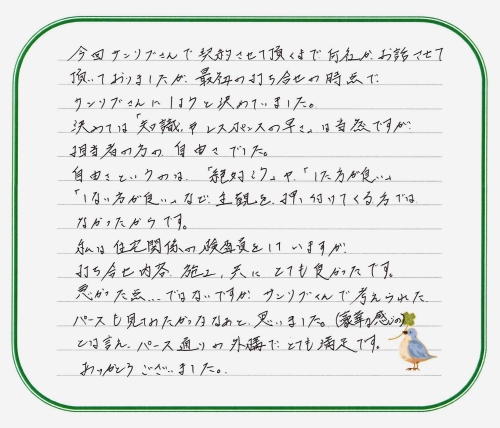 今回サンリブさんで契約させて頂くまで何名かお話させて
頂いておりましたが、最初の打ち合せの時点で
サンリブさんにしようと決めていました。
決めては「知識」や「レスポンスの早さ」は当然ですが
担当者の方の自由さでした。
自由さというのは、「絶対こう」や、「した方が良い」
「しない方が良い」など主観を押し付けてくる方では
なかったからです。
私は住宅関係の検査員をしていますが
打ち合せ内容、施工、共にとても良かったです。
悪かった点...ではないですが サンリブさんで考えられた
パースも見てみたかったなぁと思いました。(豪華な感じの)
とは言え、パース通りの外構で、とても満足です。
ありがとうございました。